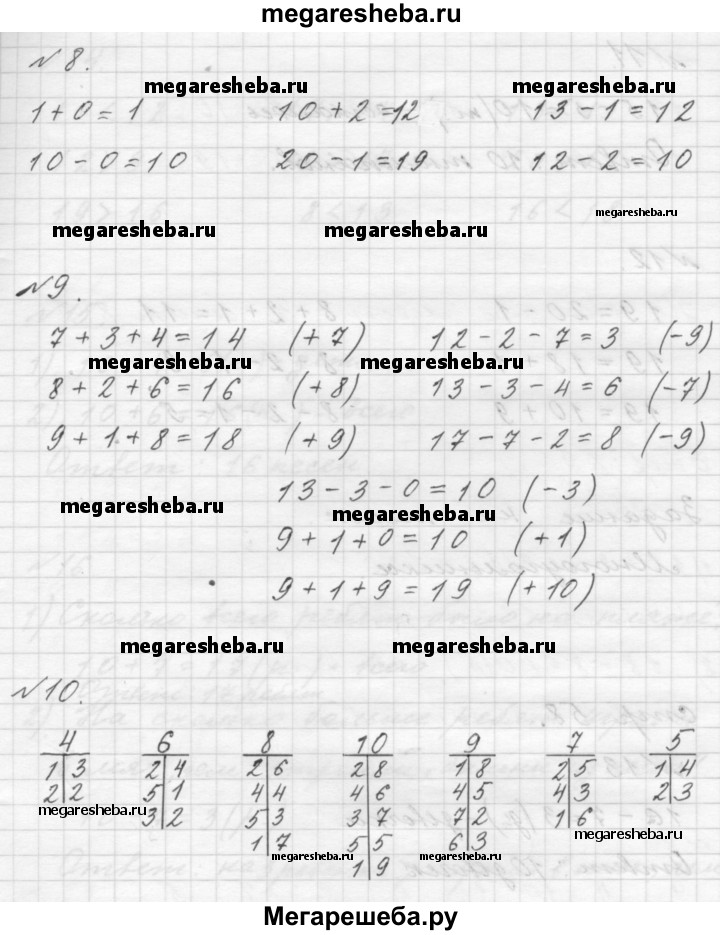 megaresheba.ru
№8.
megaresheba.ru megaresheba.ru
1+0=1 10+2=12 13-1=12
10-0=10 20-1=19 12-2=10
megaresheba.ru megaresheba.ru megaresheba.ru
№9.
7+3+4=14 (+7) 12-2-7=3 (-9)
megaresheba.ru megaresheba.ru
8+2+6=16 (+8) 13-3-4=6 (-7)
9+1+8=18 (+9) 17-7-2=8 (-9)
13-3-0=10 (-3)
megaresheba.ru megaresheba.ru
9+1+0=10 (+1)
9+1+9=19 (+10)
megaresheba.ru megaresheba.ru
№10.
4 6 8 10 9 7 5
1|3 2|4 2|6 2|8 1|8 2|5 1|4
2|2 5|1 4|4 4|6 4|5 4|3 2|3
megaresheba.ru 3|2 5|3 3|7 7|2 1|6 megaresheba.ru
1|7 5|5 6|3
megaresheba.ru 1|9 megaresheba.ru
Мегарешеба.ру